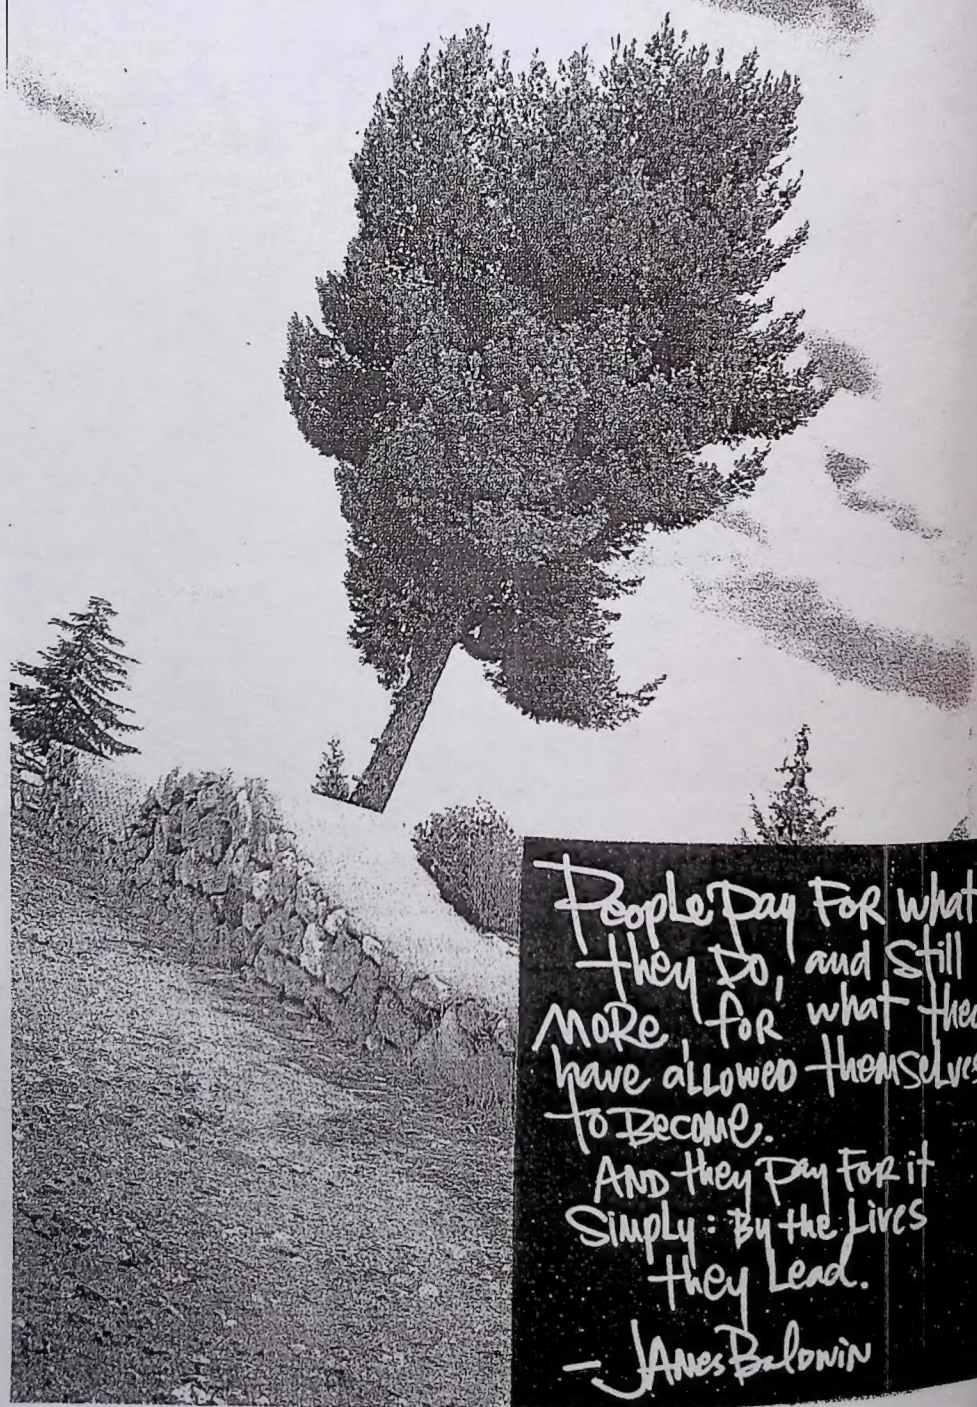 People Pay For what
they Do, and Still
More, for what they
have allowed themselves
to Become.
And they pay For it
Simply: By the Lives
they Lead.
- James Baldwin